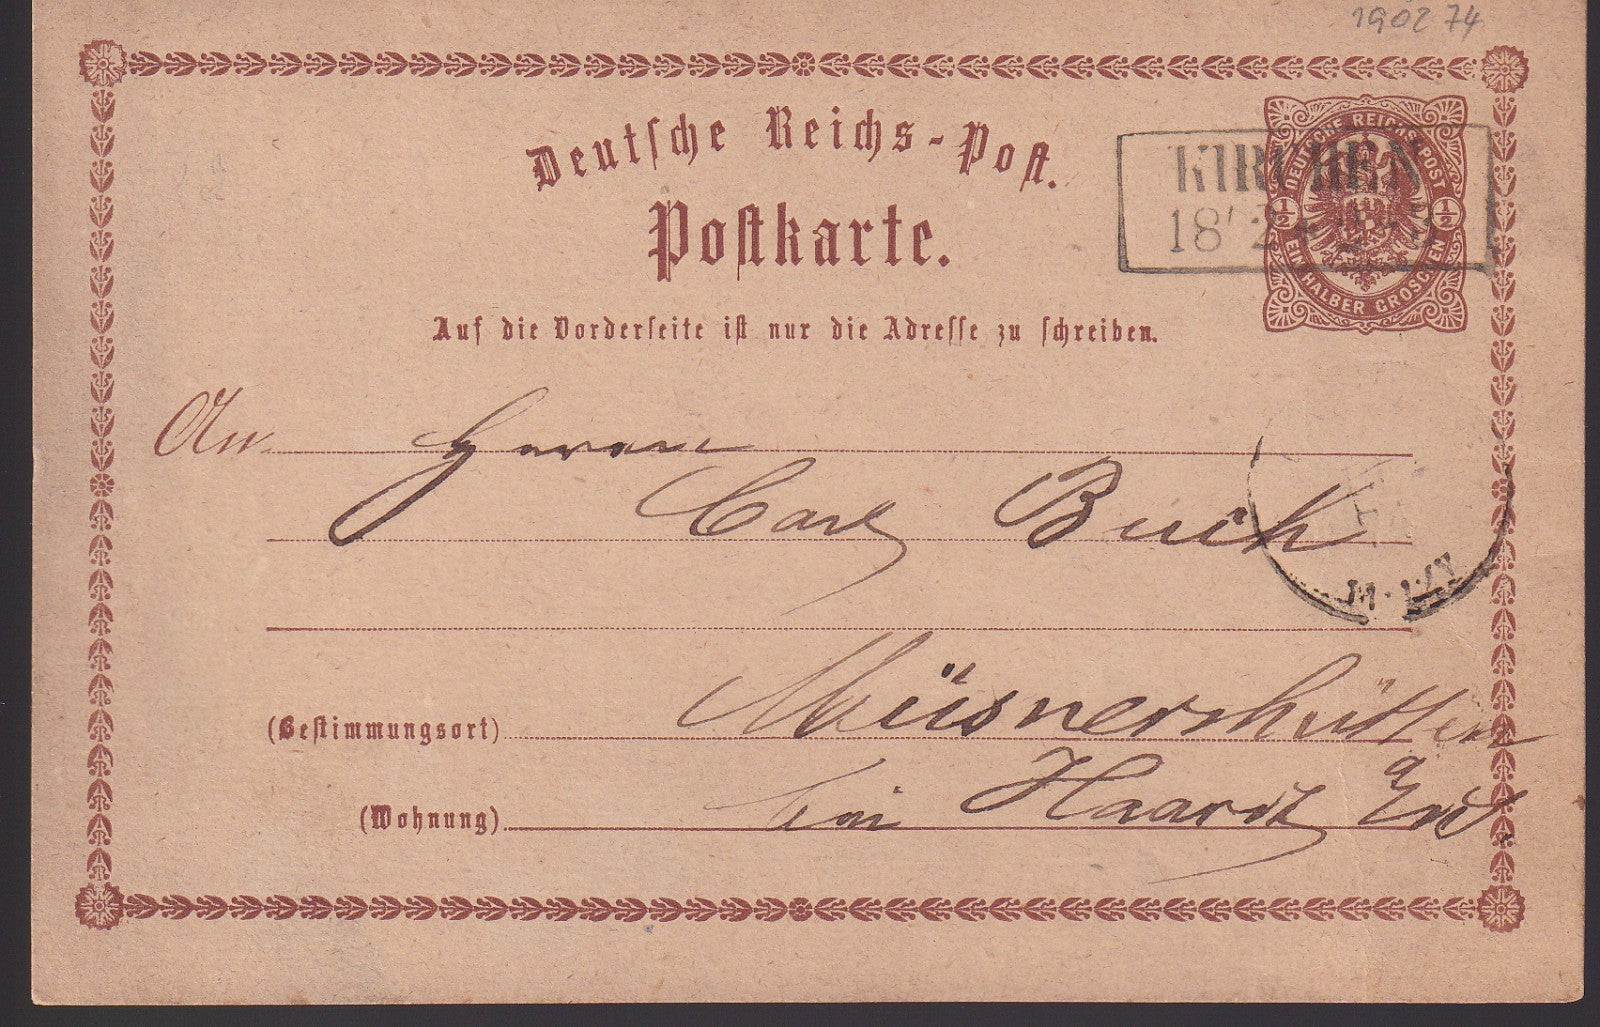 190274
Deutsche Reichs-Post.
Postkarte.
DEUTSCHE REICHS-POST
½ ½
EIN HALBER GROSCHEN
KIRCHEN
18 2
Auf die Vorderseite ist nur die Adresse zu schreiben.
An Herrn
Carl Buch
(Bestimmungsort) Müsnershütten
(Wohnung) bei Haardt a/